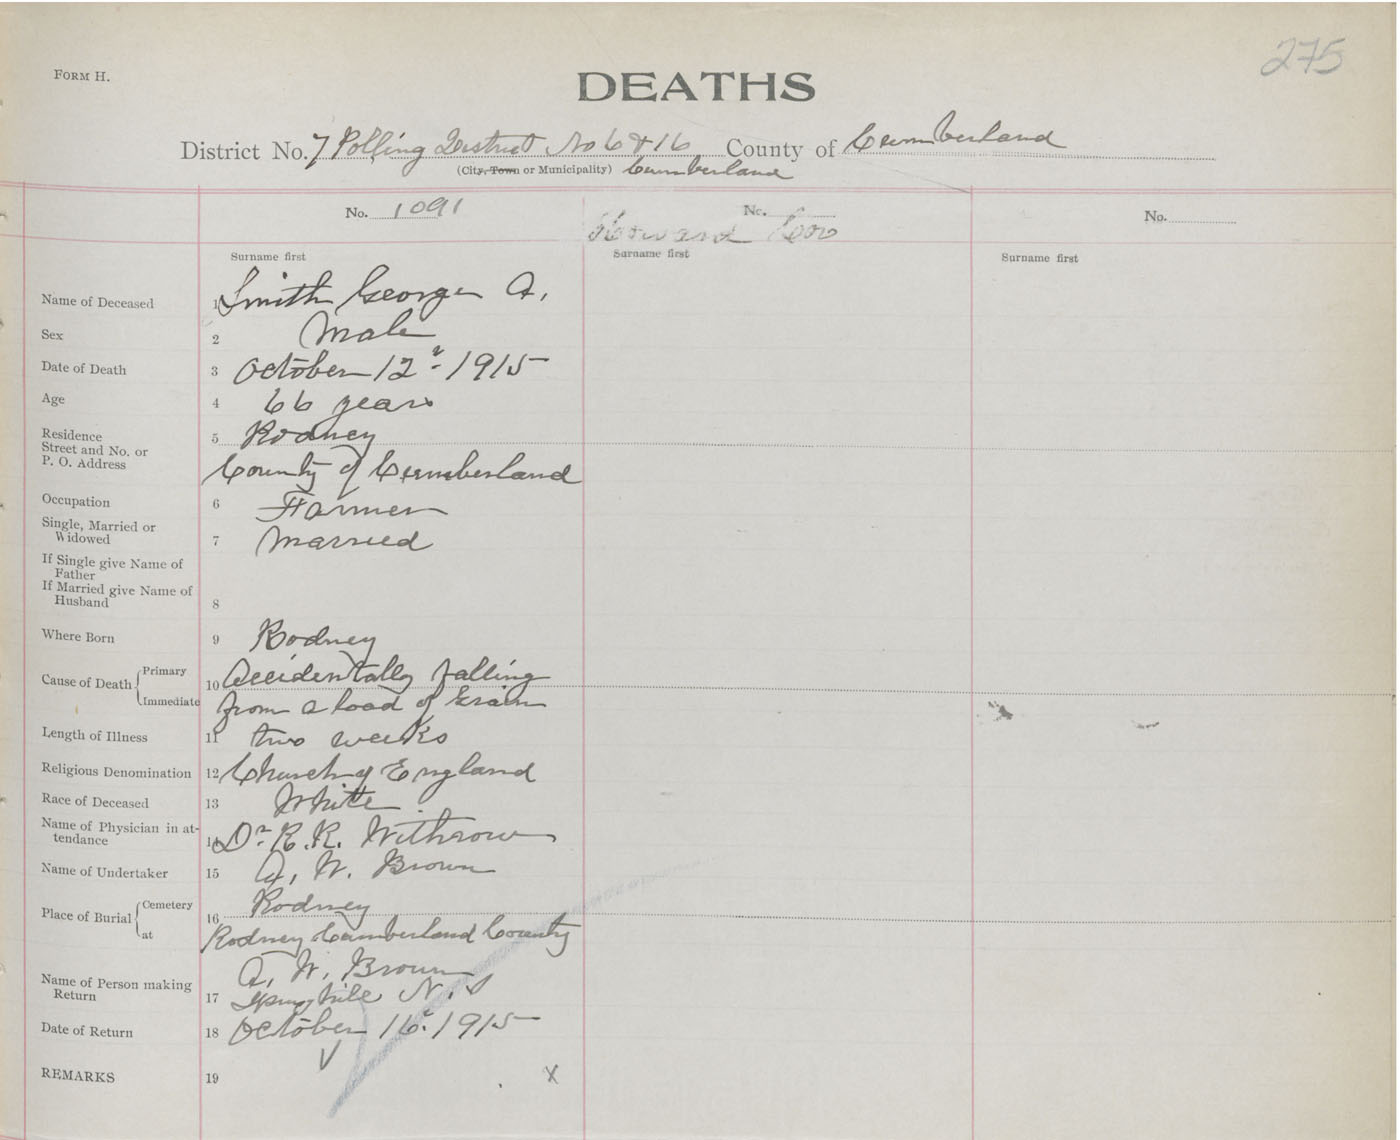 275
FORM H.
DEATHS
District No. 7 Polling District No 6 & 16 County of Cumberland
(City, Town or Municipality) Cumberland
No. 1091 No. No.
Howard
Surname first Surname first Surname first
Name of Deceased 1 Smith George A.
Sex 2 Male
Date of Death 3 October 12" 1915
Age 4 66 years
Residence
Street and No. or
P. O. Address
5 Rodney
County of Cumberland
Occupation 6 Farmer
Single, Married or
Widowed 7 Married
If Single give Name of
Father
If Married give Name of
Husband 8
Where Born 9 Rodney
Cause of Death Primary
Immediate
10 Accidentally falling
from a load of Grain
Length of Illness 11 two weeks
Religious Denomination 12 Church of England
Race of Deceased 13 White
Name of Physician in at-
tendance 14 Dr. R. R. Withrow
Name of Undertaker 15 A. W. Brown
Place of Burial Cemetery
at
16 Rodney
Rodney Cumberland County
Name of Person making
Return 17
A. W. Brown
Springhill N. S
Date of Return 18 October 16" 1915
REMARKS 19 X